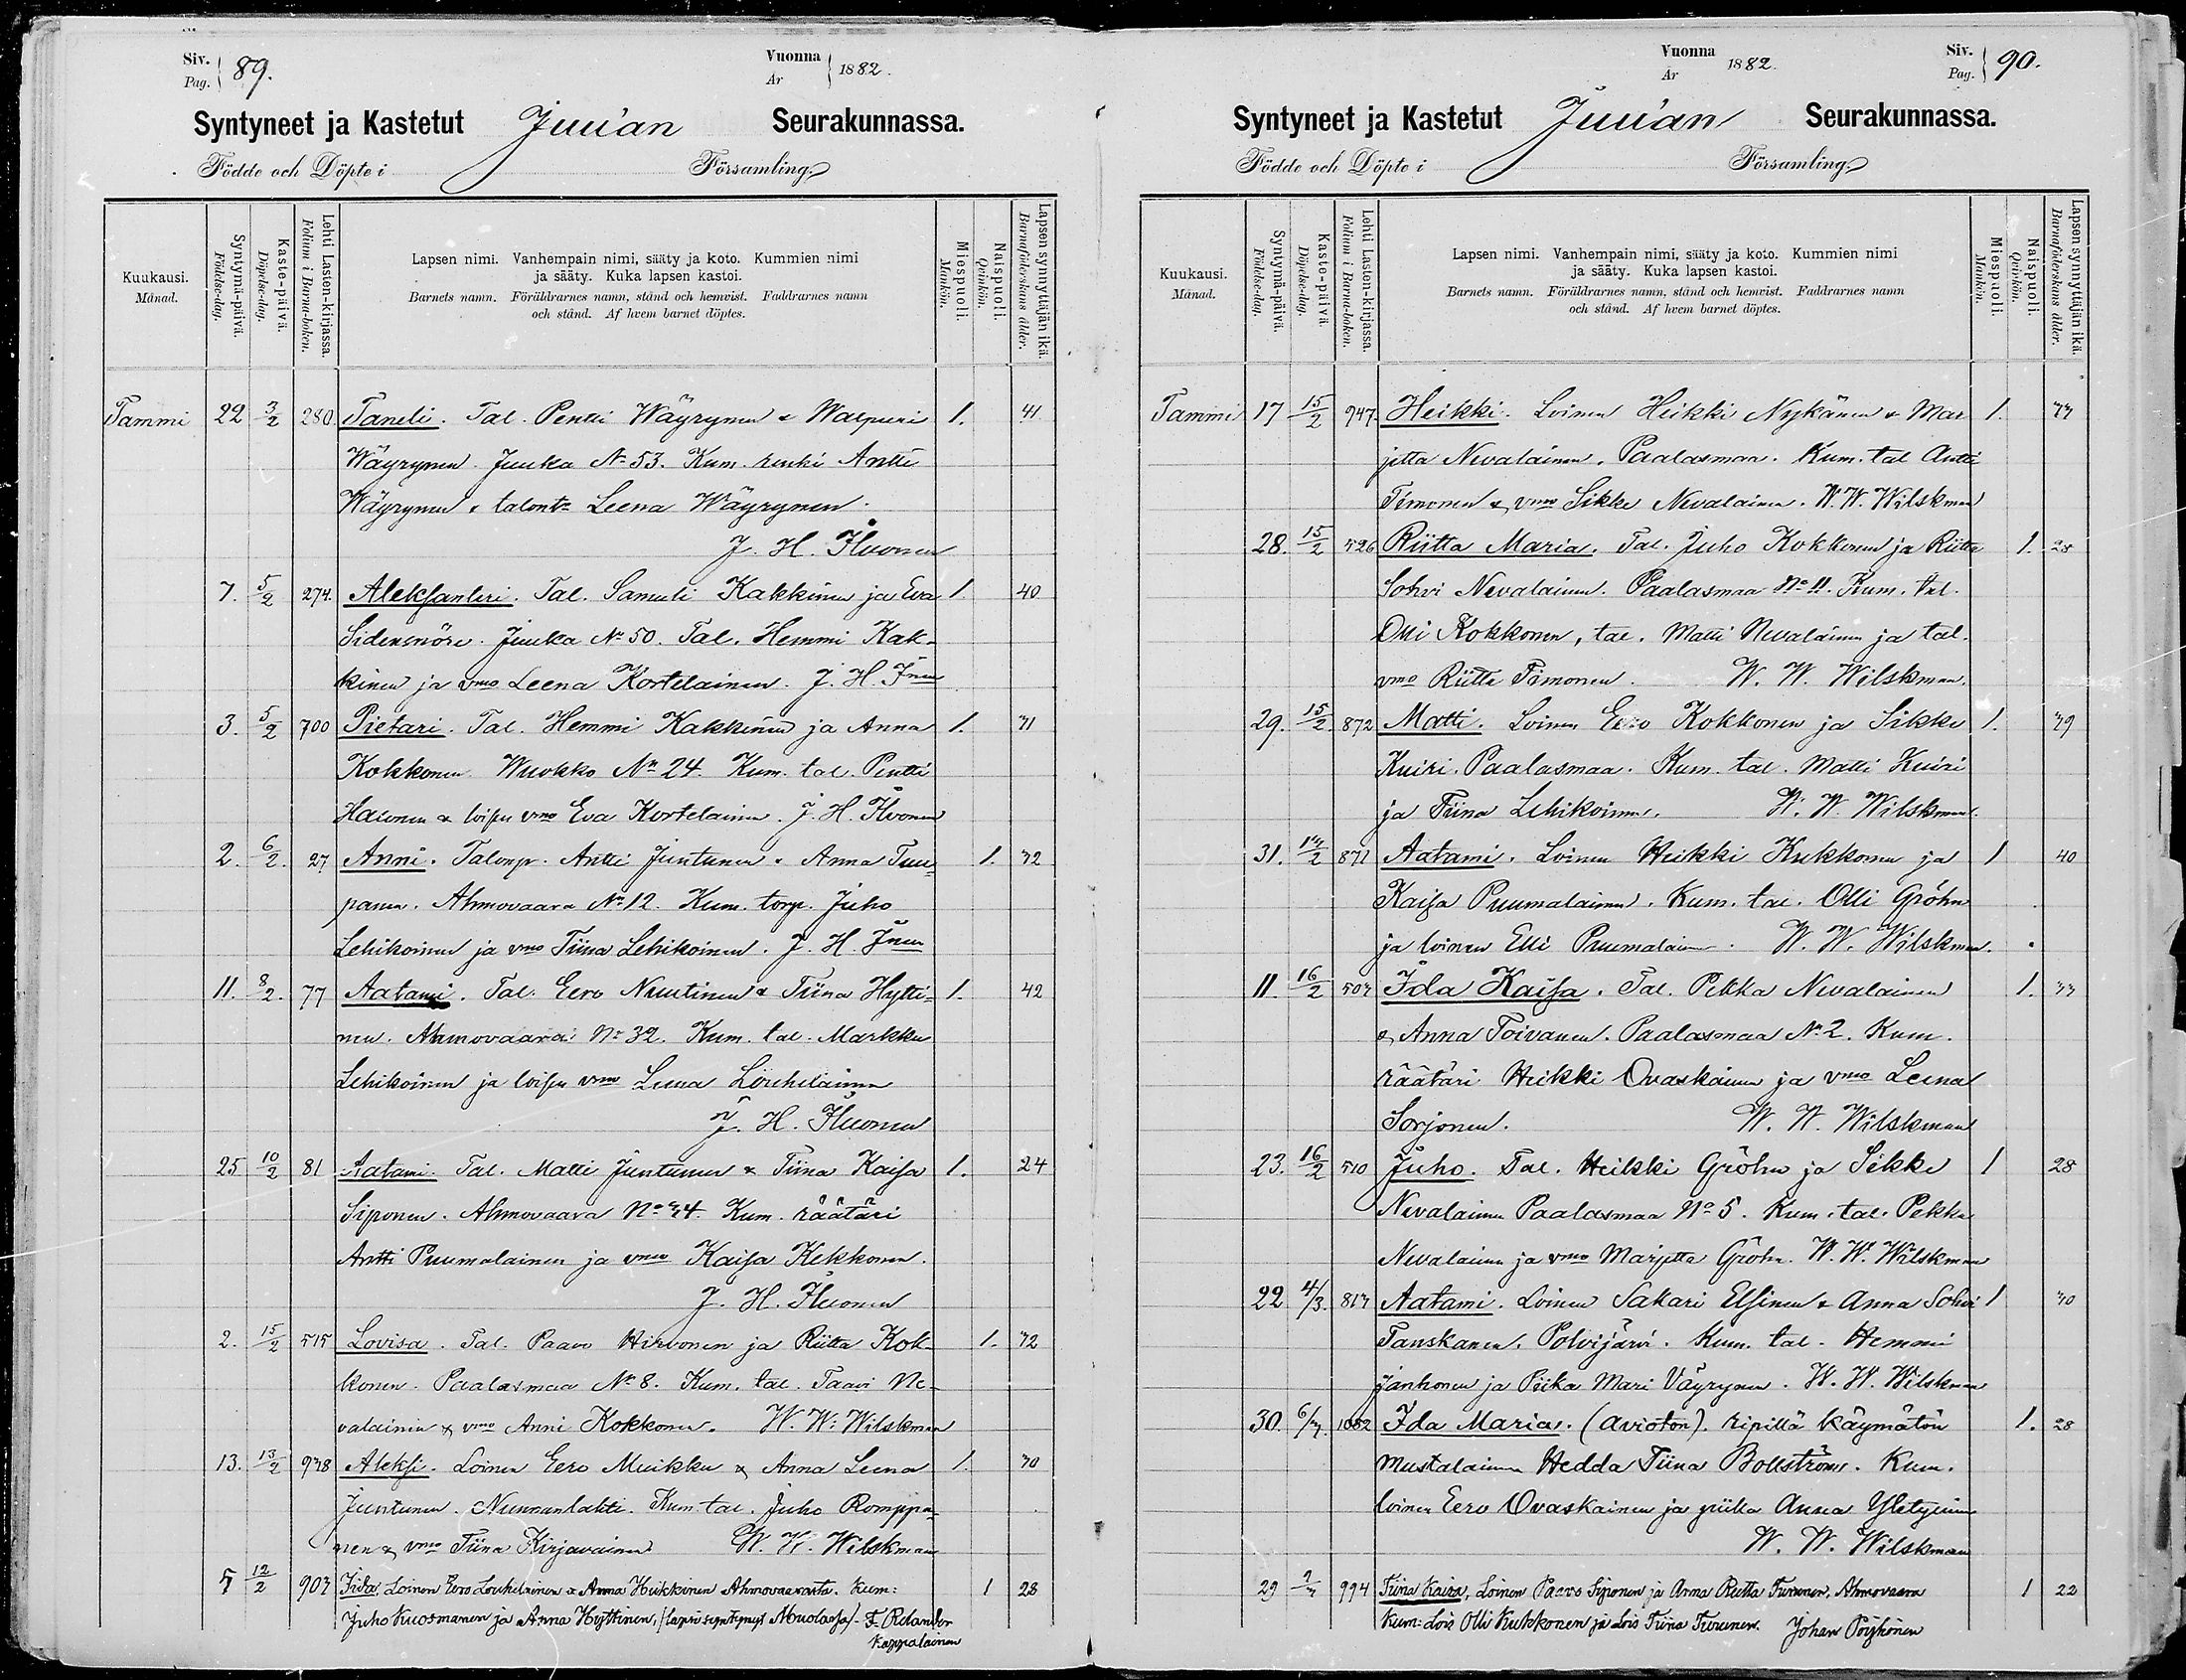 Siv. Pag. 89.
Vuonna År 1882.
Syntyneet ja Kastetut Juu'an Seurakunnassa.
Födde och Döpte i Församling.
Kuukausi. Månad.
Syntymä-päivä. Födelse-dag.
Kaste-päivä. Döpelse-dag.
Lehti Lasten-kirjassa. Folium i Barna-boken.
Lapsen nimi. Vanhempain nimi, sääty ja koto. Kummien nimi
ja sääty. Kuka lapsen kastoi.
Barnets namn. Föräldrarnes namn, stånd och hemvist. Faddrarnes namn
och stånd. Af hvem barnet döptes.
Miespuoli. Mankön.
Naispuoli. Qvinkön.
Lapsen synnyttäjän ikä. Barnaföderskans ålder.
Tammi 22 3/2 280. Taneli. Tal. Pentti Wäyrynen & Walpuri 1. 41
Wäyrynen. Juuka No 53. Kum. renki Antti
Wäyrynen & talont. Leena Wäyrynen.
J. H. Ihvonen
7. 5/2 274. Aleksanteri. Tal. Samuli Kakkinen ja Eva 1. 40
Sidensnöre. Juuka No 50. Tal. Hemmi Kak-
kinen ja vmo Leena Kortelainen. J. H. Inen
3. 5/2 700 Pietari. Tal. Hemmi Kakkinen ja Anna 1. 31
Kokkonen. Wuokko No 24. Kum. tal. Pentti
Halonen & loisen vmo Eva Kortelainen. J. H. Ihvonen
2. 6/2. 27 Anni. Talonp. Antti Juntunen & Anna Tuu- 1. 32
panen. Ahmovaara No 12. Kum. torp. Juho
Lehikoinen ja vmo Tiina Lehikoinen. J. H. Inen
11. 8/2. 77 Aatami. Tal. Eero Nuutinen & Tiina Hytti- 1. 42
nen. Ahmovaara No 32. Kum. tal. Markku
Lehikoinen ja loisen vmo Leena Löuhelainen
J. H. Ihvonen
25 10/2 81 Aatami. Tal. Matti Juntunen & Tiina Kaisa 1. 24
Siponen. Ahmovaara No 34. Kum. räätäri
Antti Puumalainen ja vmo Kaisa Kekkonen.
J. H. Ihvonen
2. 15/2 515 Lovisa. Tal. Paavo Hirvonen ja Riitta Kok- 1. 32
konen. Paalasmaa No 8. Kum. tal. Taavi Ne-
valainen & vmo Anni Kokkonen. W. W. Wilskman
13. 13/2 938 Aleksi. Loinen Eero Muikku & Anna Leena 1. 30
Juntunen. Nunnanlahti. Kum. tal. Juho Romppa-
nen & vmo Tiina Kirjavainen W. W. Wilskman
5 12/2 903 Iida, Loinen Eero Louhelainen & Anna Heikkinen Ahmovaarasta. Kum: 1 28
Juho Kuosmanen ja Anna Hyttinen, (lapsi syntynyt Nuolassa). F. Relander
Kappalainen
Vuonna År 1882.
Siv. Pag. 90.
Syntyneet ja Kastetut Juu'an Seurakunnassa.
Födde och Döpte i Församling.
Kuukausi. Månad.
Syntymä-päivä. Födelse-dag.
Kaste-päivä. Döpelse-dag.
Lehti Lasten-kirjassa. Folium i Barna-boken.
Lapsen nimi. Vanhempain nimi, sääty ja koto. Kummien nimi
ja sääty. Kuka lapsen kastoi.
Barnets namn. Föräldrarnes namn, stånd och hemvist. Faddrarnes namn
och stånd. Af hvem barnet döptes.
Miespuoli. Mankön.
Naispuoli. Qvinkön.
Lapsen synnyttäjän ikä. Barnaföderskans ålder.
Tammi 17 15/2 947. Heikki. Loinen Heikki Nykänen & Mar 1. 33
jetta Nevalainen. Paalasmaa. Kum. tal Antti
Timonen & vmo Sikke Nevalainen. W. W. Wilskman
28. 15/2 526 Riitta Maria. Tal. Juho Kokkonen ja Riitta 1. 28
Sohvi Nevalainen. Paalasmaa No 11. Kum. tal.
Olli Kokkonen, tal. Matti Nevalainen ja tal.
vmo Riitta Timonen. W. W. Wilskman.
29. 15/2 872 Matti. Loinen Eero Kokkonen ja Sikke 1. 39
Kuiri. Paalasmaa. Kum. tal. Matti Kuiri
ja Tiina Lehikoinen. W. W. Wilskman.
31. 871 Aatami. Loinen Heikki Kukkonen ja 1 40
Kaisa Puumalainen. Kum. tal. Olli Gröhn
ja loinen Elli Puumalainen. W. W. Wilskman.
11. 16/2 503 Ida Kaisa. Tal. Pekka Nevalainen 1. 33
& Anna Toivanen. Paalasmaa No 2. Kum.
räätäri Heikki Ovaskainen ja vmo Leena
Sorjonen. W. W. Wilskman
23. 16/2 510 Juho. Tal. Heikki Gröhn ja Sikke 1 28
Nevalainen Paalasmaa No 5. Kum. tal. Pekka
Nevalainen ja vmo Marjetta Gröhn. W. W. Wilskman
22 4/3. 813 Aatami. Loinen Sakari Elsinen & Anna Sohvi 1 30
Tanskanen. Polvijärvi. Kum. tal. Hemmi
Janhonen ja Piika Mari Väyrynen. W. W. Wilskman
30. 6/3. 1082 Ida Maria. (avioton). ripillä käymätön 1. 28
mustalainen Hedda Tiina Bollström. Kum.
loinen Eero Ovaskainen ja piika Anna Yletyinen
W. W. Wilskman
29 994 Tiina Kaisa, Loinen Paavo Siponen ja Anna Riitta Turunen, Ahmovaara 1 22
Kum: Lois Olli Kukkonen ja Lois Tiina Turunen. Johan Pöyhönen